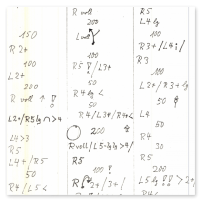 150
R 2+
100
L2+
200
R voll
L2+/R5 lg ∩ > 4
L4>3
R5
L4+/R5
50
R4/L5<
R voll
200
L voll
50
R5 !! / L3+
50
R4 lg <
50
R4/L3+/R4<
200
R voll/L5-lg lg>4/
R5
100 !
2+/3+/
R5
L4 lg
100
R3+/L4i/
R3
100
L2+/R3+ lg
50
L4
50
R4
30
R5
200
L5 lg !! > 2+,
R4/